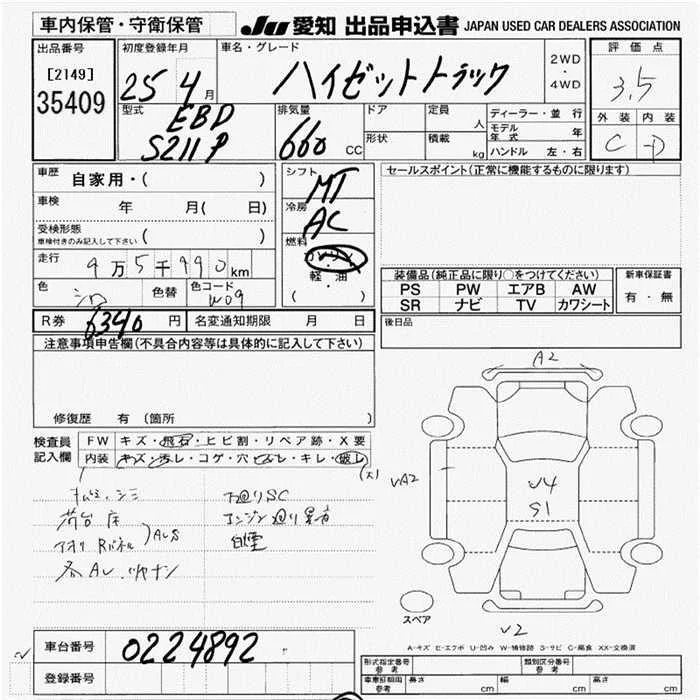 車内保管・守衛保管
JU 愛知 出品申込書 JAPAN USED CAR DEALERS ASSOCIATION
出品番号
[2149]
35409
初度登録年月
25 4月
車名・グレード
ハイゼットトラック
2WD
・
4WD
評価点
3.5
外装 内装
C D
型式
EBD
S211P
排気量
660 CC
ドア
形状
定員 人
積載 kg
ディーラー・並行
モデル年式 年
ハンドル 左・右
車歴
自家用・( )
車検 年 月( 日)
受検形態
車検付きのみ記入して下さい ( )
走行
9万5千990km
色 シロ 色替 色コード W09
シフト
MT
冷房
AC
燃料
ガソリン
軽・油
( )
セールスポイント(正常に機能するものに限ります)
装備品(純正品に限り○をつけてください)
PS PW エアB AW
SR ナビ TV カワシート
新車保証書
有・無
R券 6340円 名変通知期限 月 日
後日品
注意事項申告欄(不具合内容等は具体的に記入して下さい)
修復歴 有(箇所 )
検査員記入欄
FW キズ・飛石・ヒビ割・リペア跡・X要
内装 キズ・汚レ・コゲ・穴・ビスレ・キレ・破レ
(大)
下廻りSC
荷台 床
エンジン廻り異音
アオリ Rパネル ALS
白煙
A2
VA2
V4
S1
スペア
V2
A-キズ E-エクボ U-凹み W-補修跡 S-サビ C-腐食 XX-交換済
車台番号 0224892
登録番号
形式指定番号
参考
類別区分番号
参考
車両詳細
参考
長さ cm 幅 cm 高さ cm